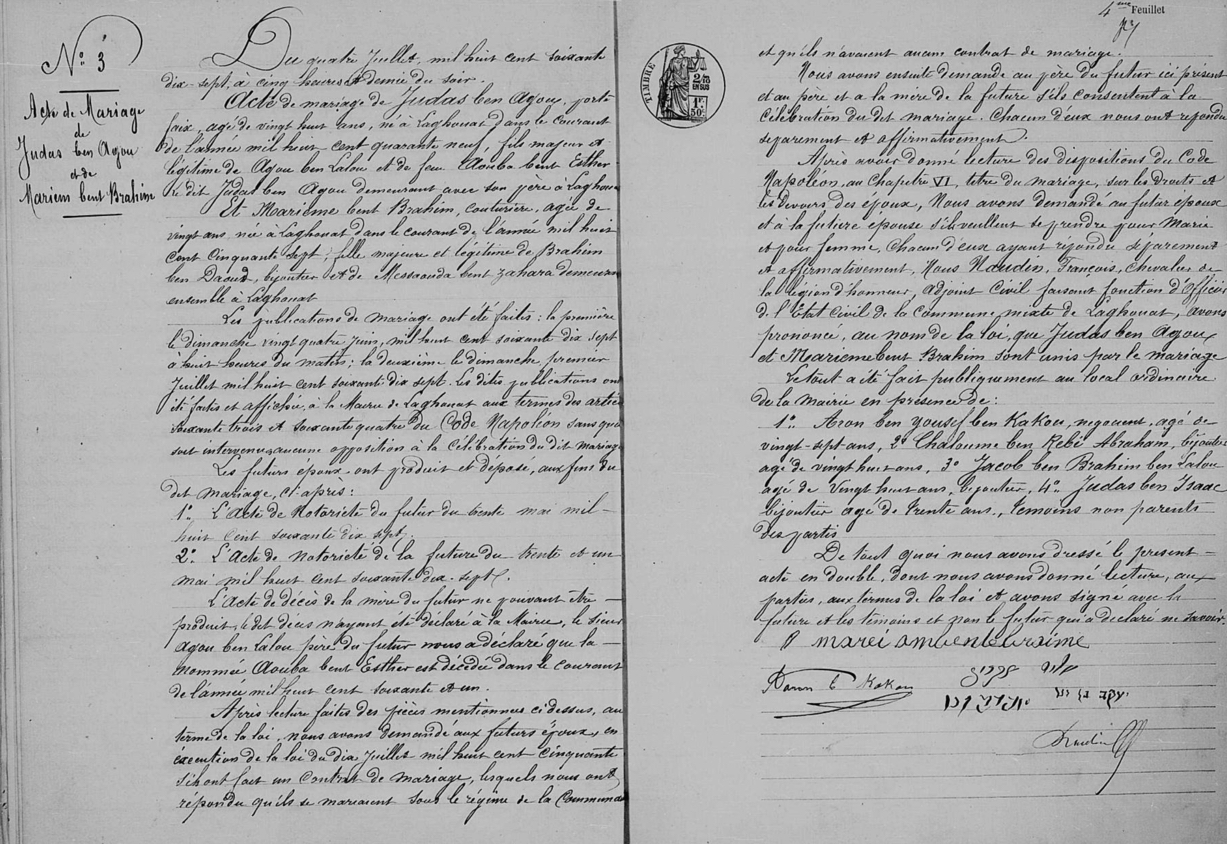 N° 3
Acte de Mariage
de
Judas ben Agou
et de
Mariem bent Brahim
Du quatre Juillet, mil huit cent soixante
dix-sept, à cinq heures et demie du soir.
Acte de mariage de Judas ben Agou, porte
faix, agé de vingt huit ans, né à Laghouat dans le courant
de l'année mil huit cent quarante neuf, fils majeur et
légitime de Agou ben Lalou et de feu Aouba bent Esther
le dit Judas ben Agou demeurant avec son père à Laghouat
Et Marième bent Brahim, couturière, agée de
vingt ans née à Laghouat dans le courant de l'année mil huit
cent cinquante sept, fille majeure et légitime de Brahim
ben Daoud, bijoutier et de Messaouda bent Zahara demeurant
ensemble à Laghouat
Les publications de mariage ont été faites : la première
le dimanche vingt quatre juin, mil huit cent soixante dix sept
à huit heures du matin; la deuxième le dimanche premier
Juillet mil huit cent soixante dix sept. Les dites publications ont
été faites et affichée, à la Mairie de Laghouat aux termes des articles
soixante trois et soixante quatre du Code Napoléon sans que
soit intervenu aucune opposition à la célébration du dit mariage
Les futurs époux, ont produit et déposé, aux fins du
dit mariage, ci-après :
1° L'Acte de Notoriété du futur du trente mai mil
huit cent soixante dix sept,
2° L'Acte de Notoriété de la future du trente et un
mai mil huit cent soixante dix-sept.
L'Acte de décès de la mère du futur ne pouvant être
produit, le dit décès n'ayant été déclaré à la Mairie, le sieur
Agou ben Lalou père du futur nous a déclaré que la
nommée Aouba bent Esther est décédée dans le courant
de l'année mil huit cent soixante et un.
Après lecture faites des pièces mentionnées ci dessus, au
terme de la loi, nous avons demandé aux futurs époux, en
exécution de la loi du dix Juillet mil huit cent cinquante
s'ils ont fait un Contrat de mariage, lesquels nous ont
répondu qu'ils se mariaient sous le régime de la Communauté
4me Feuillet
TIMBRE
2/10
EN SUS
1F
50c
et qu'ils n'avaient aucun contrat de mariage.
Nous avons ensuite demandé au père du futur ici présent
et au père et a la mère de la future s'ils consentent à la
célébration du dit mariage. Chacun d'eux nous ont répondu
séparement et affirmativement.
Après avoir donné lecture des dispositions du Code
Napoléon, au Chapitre VI, titre du mariage, sur les droits et
les devoirs des époux, Nous avons demandé au futur époux
et à la future épouse s'ils veulent se prendre pour Marie
et pour femme, Chacun d'eux ayant répondu séparement
et affirmativement, Nous Naudin, François, Chevalier de
la légion d'honneur, Adjoint Civil faisant fonction d'Officier
de l'Etat Civil de la Commune mixte de Laghouat, avons
prononcé, au nom de la loi, que Judas ben Agou
et Marieme bent Brahim sont unis par le mariage
Le tout a été fait publiquement au local ordinaire
de la Mairie en présence de :
1° Aron ben Yousef ben Kakou, negociant, agé de
vingt-sept ans, 2° Chaloume ben Rebi Abraham, bijoutier
agé de vingt huit ans, 3° Jacob ben Brahim ben Lalou
agé de Vingt huit ans, bijoutier, 4° Judas ben Isaac
bijoutier agé de trente ans, témoins non parents
des partis
De tout quoi nous avons dressé le présent
acte en double, dont nous avons donné lecture, aux
parties, aux termes de la loi et avons signé avec la
future et les témoins et non le futur qui a déclaré ne savoir.
Aaron b Kakou
Naudin